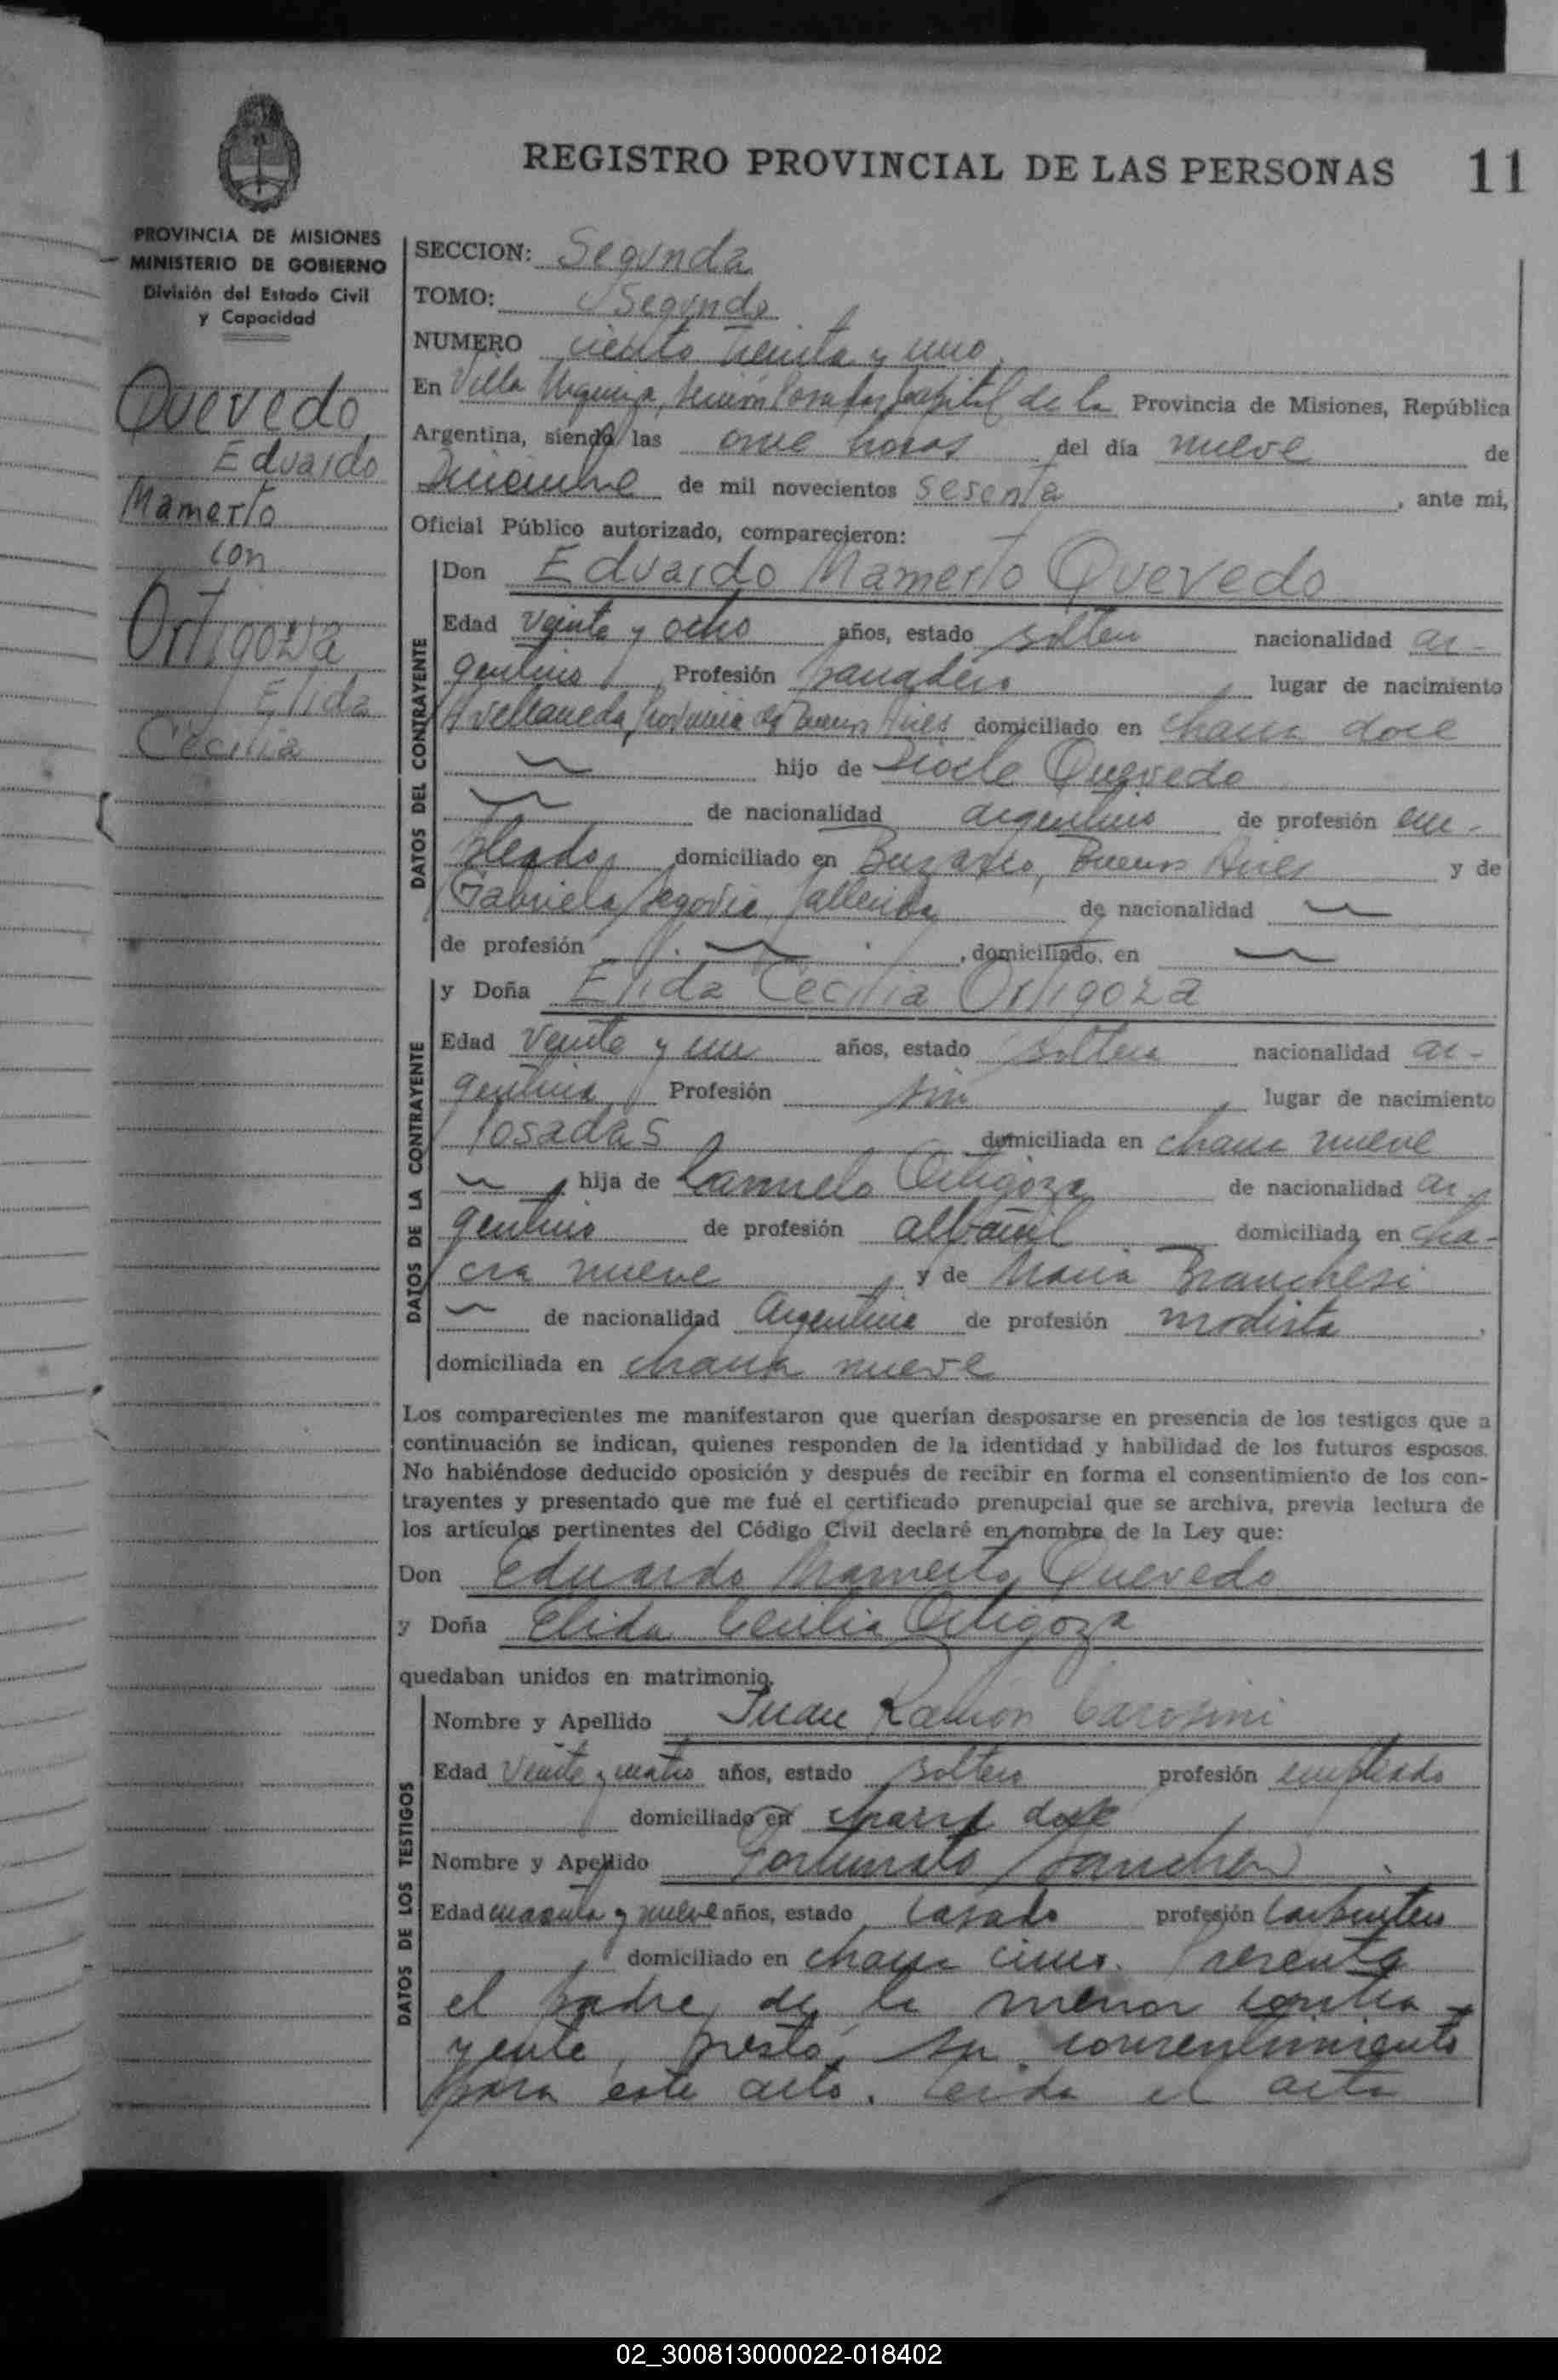 REGISTRO PROVINCIAL DE LAS PERSONAS 11
PROVINCIA DE MISIONES
MINISTERIO DE GOBIERNO
División del Estado Civil
y Capacidad
Quevedo
Eduardo
Mamerto
con
Ortigoza
Elida
Cecilia
SECCION: Segunda
TOMO: Segundo
NUMERO ciento treinta y uno
En Villa Urquiza, Capital de la Provincia de Misiones, República
Argentina, siendo las once horas del día nueve de
Diciembre de mil novecientos sesenta, ante mi,
Oficial Público autorizado, comparecieron:
DATOS DEL CONTRAYENTE
Don Eduardo Mamerto Quevedo
Edad veinte y ocho años, estado soltero nacionalidad ar-
gentino Profesión panadero lugar de nacimiento
Avellaneda, Provincia de Buenos Aires domiciliado en chacra doce
hijo de Quevedo
de nacionalidad argentino de profesión em-
pleado, domiciliado en Buenos Aires y de
Gabriela Segovia, fallecida de nacionalidad
de profesión , domiciliado en
DATOS DE LA CONTRAYENTE
y Doña Elida Cecilia Ortigoza
Edad veinte y un años, estado soltera nacionalidad ar-
gentina Profesión sin lugar de nacimiento
Posadas domiciliada en chacra nueve
hija de Carmelo Ortigoza de nacionalidad ar-
gentino de profesión albañil domiciliada en cha-
cra nueve y de Maria Branchesi
de nacionalidad Argentina de profesión modista
domiciliada en chacra nueve
Los comparecientes me manifestaron que querían desposarse en presencia de los testigos que a
continuación se indican, quienes responden de la identidad y habilidad de los futuros esposos.
No habiéndose deducido oposición y después de recibir en forma el consentimiento de los con-
trayentes y presentado que me fué el certificado prenupcial que se archiva, previa lectura de
los artículos pertinentes del Código Civil declaré en nombre de la Ley que:
Don Eduardo Mamerto Quevedo
y Doña Elida Cecilia Ortigoza
quedaban unidos en matrimonio.
DATOS DE LOS TESTIGOS
Nombre y Apellido Juan Ramón Carosini
Edad veinte y cuatro años, estado soltero profesión empleado
domiciliado en chacra doce
Nombre y Apellido Fortunato Sanchez
Edad cuarenta y nueve años, estado casado profesión carpintero
domiciliado en chacra cinco. Presente
el padre de la menor contra-
yente, prestó su consentimiento
para este acto. Leida el acta
02_300813000022-018402